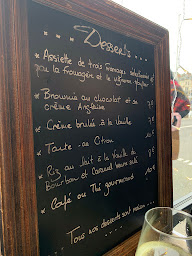 ... Desserts ...
* Assiette de trois fromages sélectionnés
par la fromagère et le vigneron
* Brownie au chocolat et sa
crème Anglaise 7€
* Crème brulée à la Vanille 7€
* Tarte au Citron
* Riz au lait à la Vanille de
Bourbon et Caramel beurre salé
* Café ou Thé gourmand 10€
Tous nos desserts sont maison ...